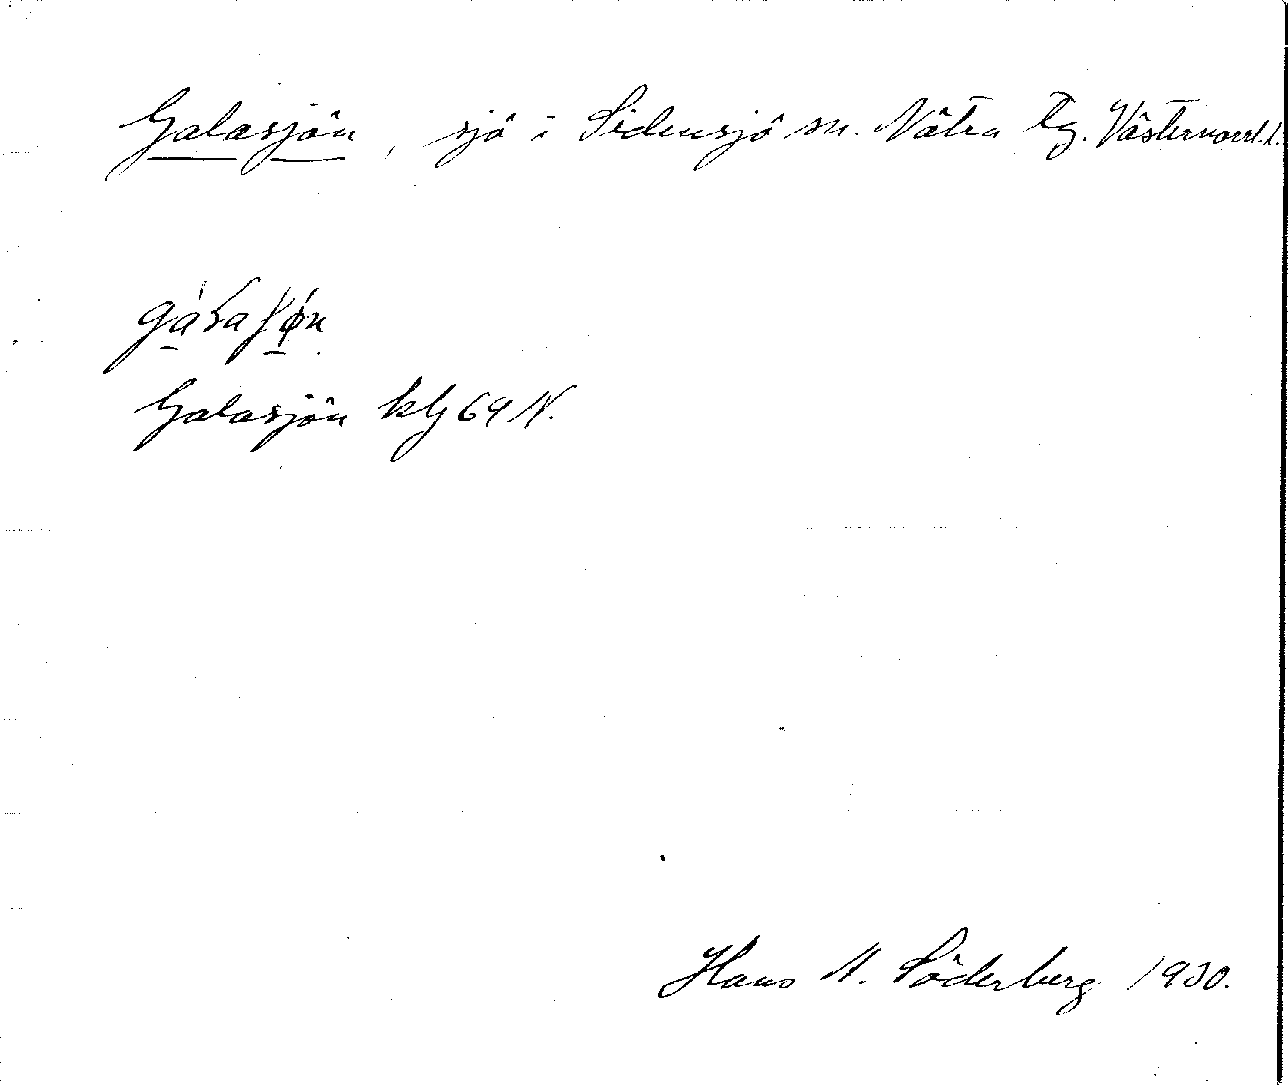 Galasjön, sjö i Sidensjö sn. Nätra tg. Västernorrl.l.
Galasjön kbl 69 N.
Hans A. Söderberg 1930.